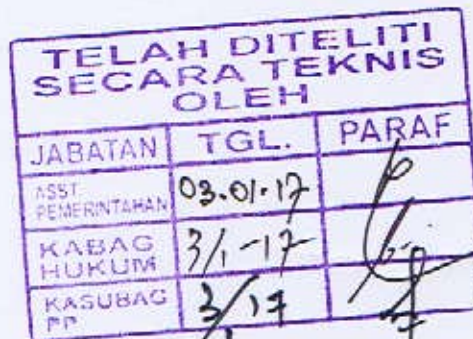 TELAH DITELITI
SECARA TEKNIS
OLEH
JABATAN TGL. PARAF
ASST. PEMERINTAHAN 03.01.17
KABAG HUKUM 3/1-17
KASUBAG PP 3/17